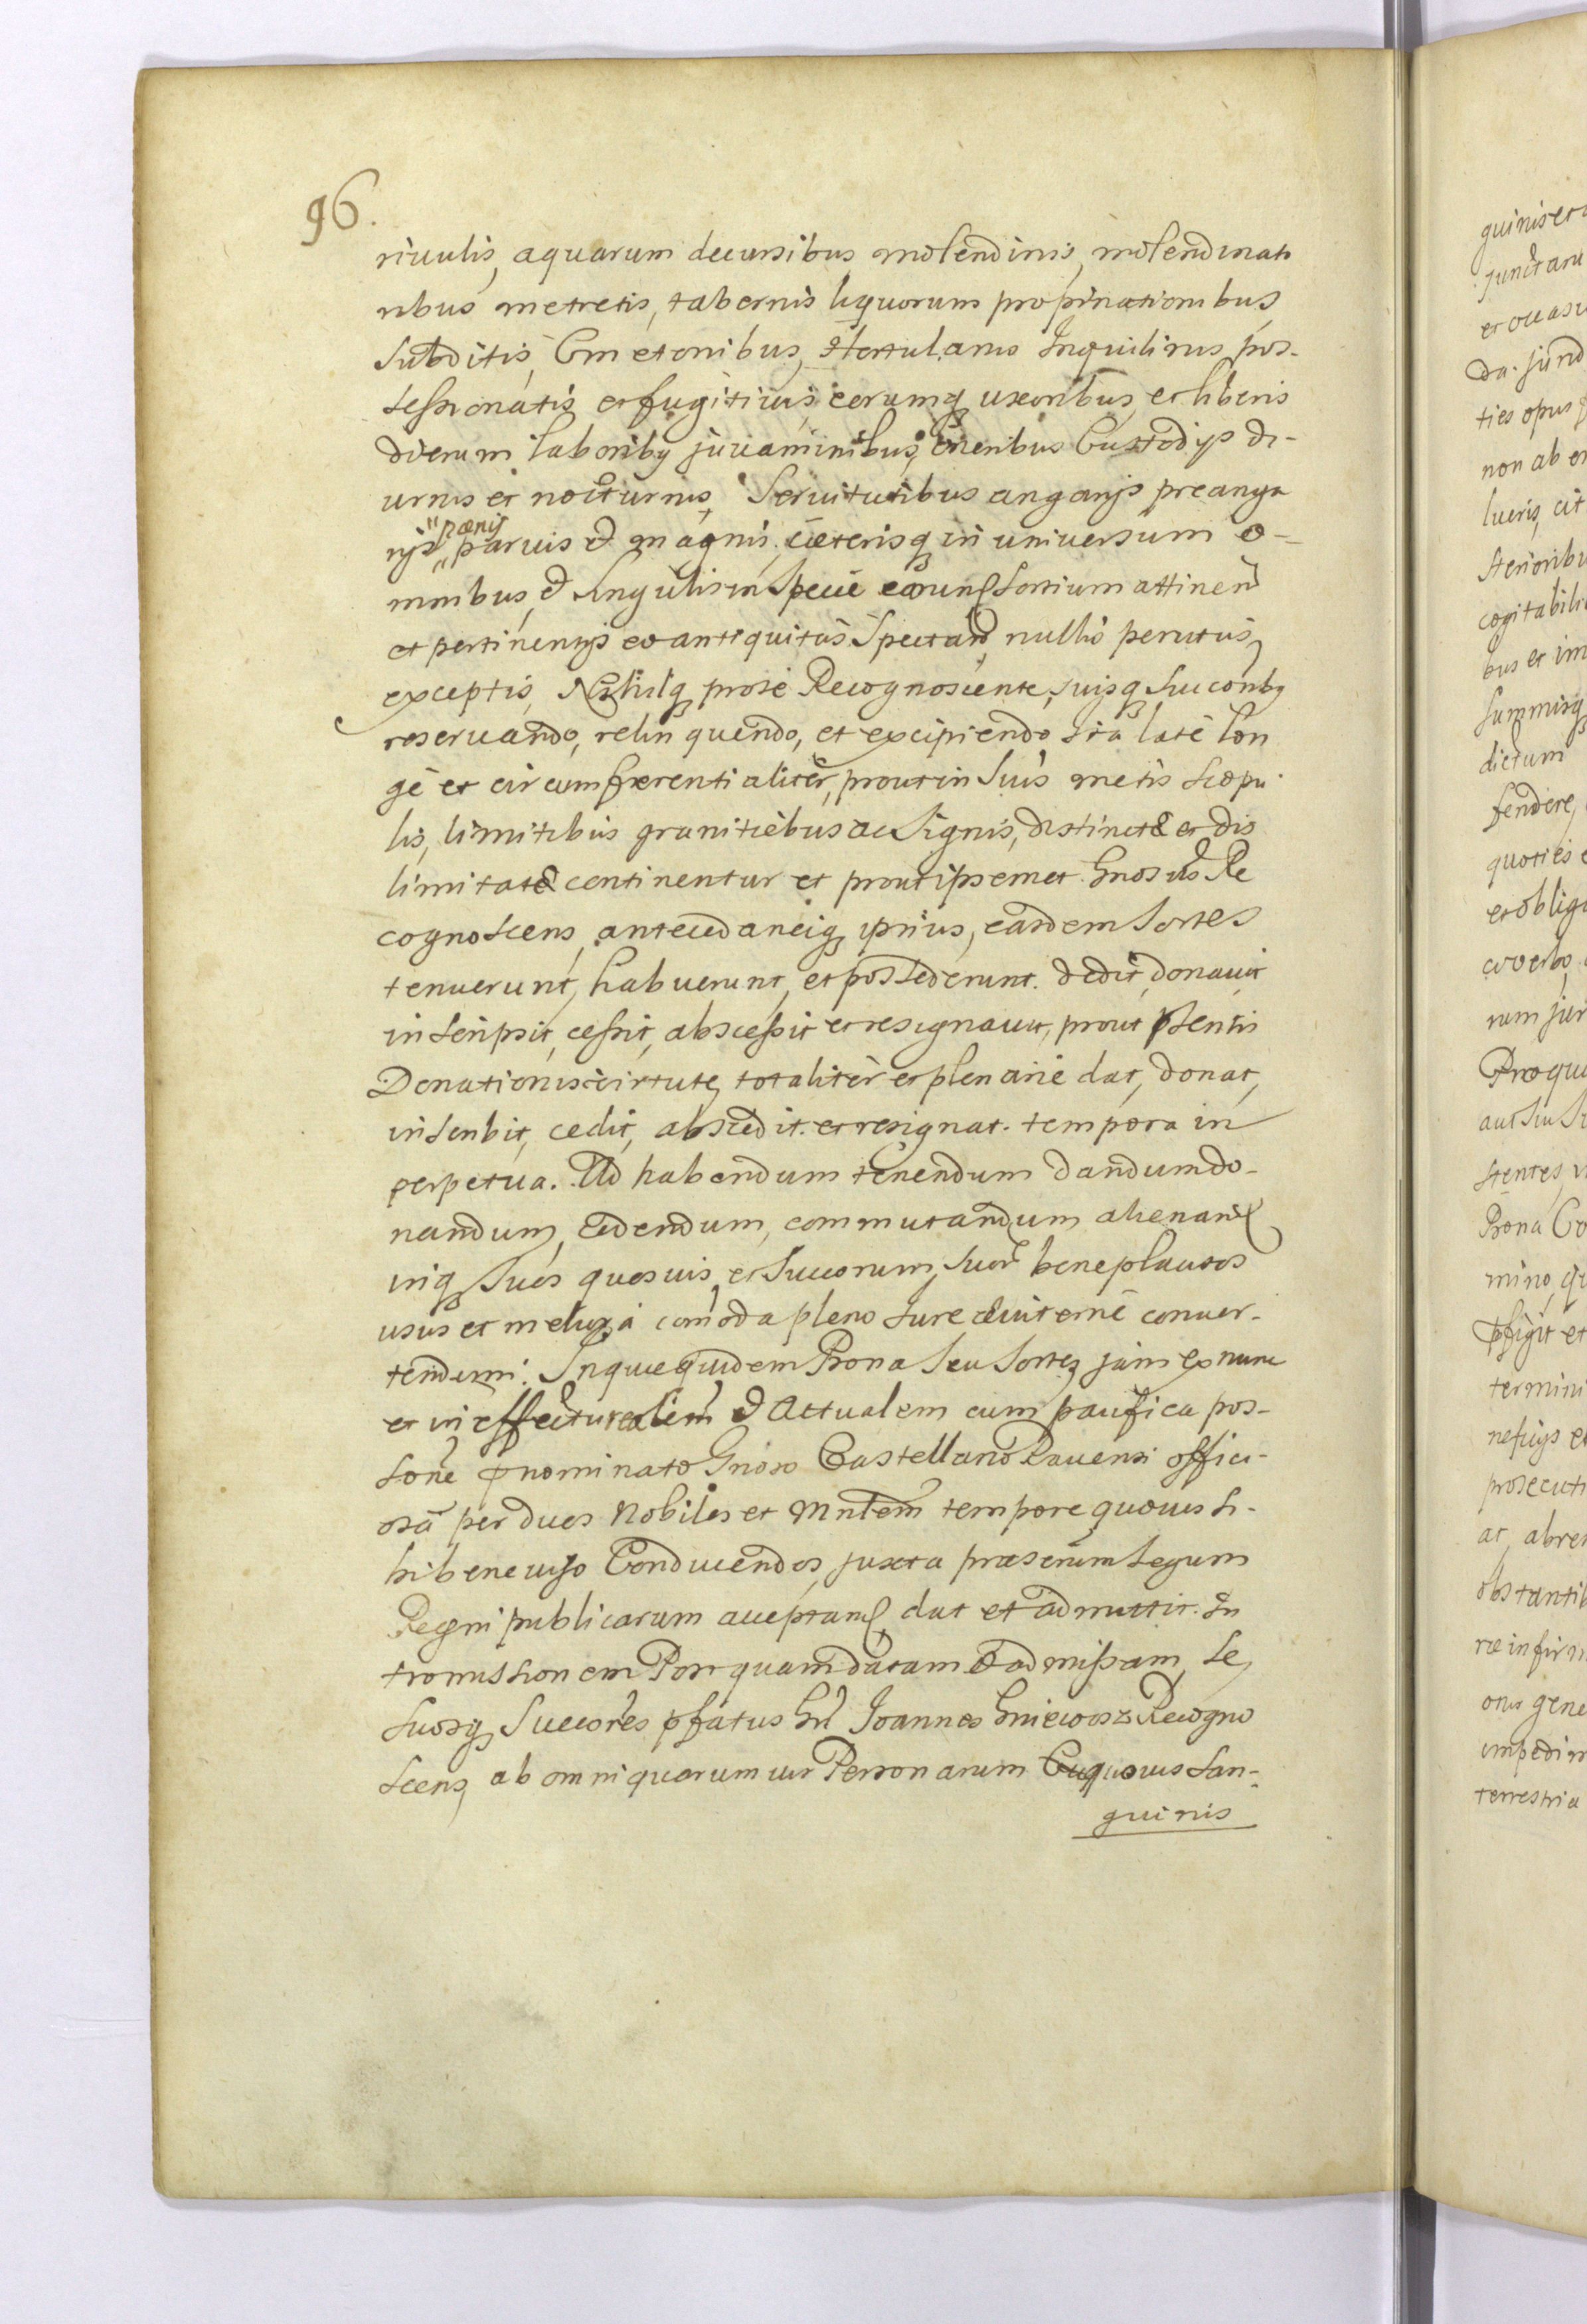 96.
riuulis, aquarum decursibus molendinis, molendinato
ribus metretis, tabernis liquorum propinationibus
Subditis, Cmetonibus, Hortulanis Inquilinis pos-
sessionatis et fugitiuis, eorumq uxoribus, et liberis
dierum laboriby juuaminibus, oneribus Custodijs di-
urnis et nocturnis, Seruitutibus angarijs preanga
rijs pænis paruis & magnis, cæterisq in universum o-
mnibus, & singulis in Specie earund sortium attinen
et pertinentijs ex antiquitus Spectan, nullis penitus
exceptis, Nihilq pro se Recognoscente, suisq succoriby
reseruando, relinquendo, et excipiendo ita late lon
ge et circumferentialiter, prout in suis metis scopu
lis, limitibus granitiebus ac signis, distincte et dis
limitate continentur et prout ipsemet Gnosus Re
cognoscens, antecedaneiq ipsius, easdem sortes
tenuerunt, habuerunt, et possederunt. dedit, donauit
inscripsit, cessit, abscessit et resignauit, prout pntis
Donationis virtute, totaliter et plenarie dat, donat,
inscribit, cedit, abscedit et resignat. tempora in
perpetua. Ad habendum tenendum dandum do-
nandum, cedendum, commutandum alienand
inq suos quosuis, et Succorum suor beneplacitos
usus et meliora comoda pleno Iure æuiterne conuer-
tendum. Inque quidem Bona seu sortes jam ex nunc
et in effectu realem & Actualem cum pacifica pos-
sone pnominato Gnoso Castellano Rauensi offici-
osa per duos Nobiles et Mnlem tempore quouis si-
bi bene uiso Conducendos, juxta præscrium Legum
Regni publicarum acceptand, dat et admittit. In
tromissionem Postquam datam & admissam, se
suosq Succores pfatus Gn Joannes Gniewosz Recogno
scens, ab omni quarumuis Personarum Cuquouis San-
guinis